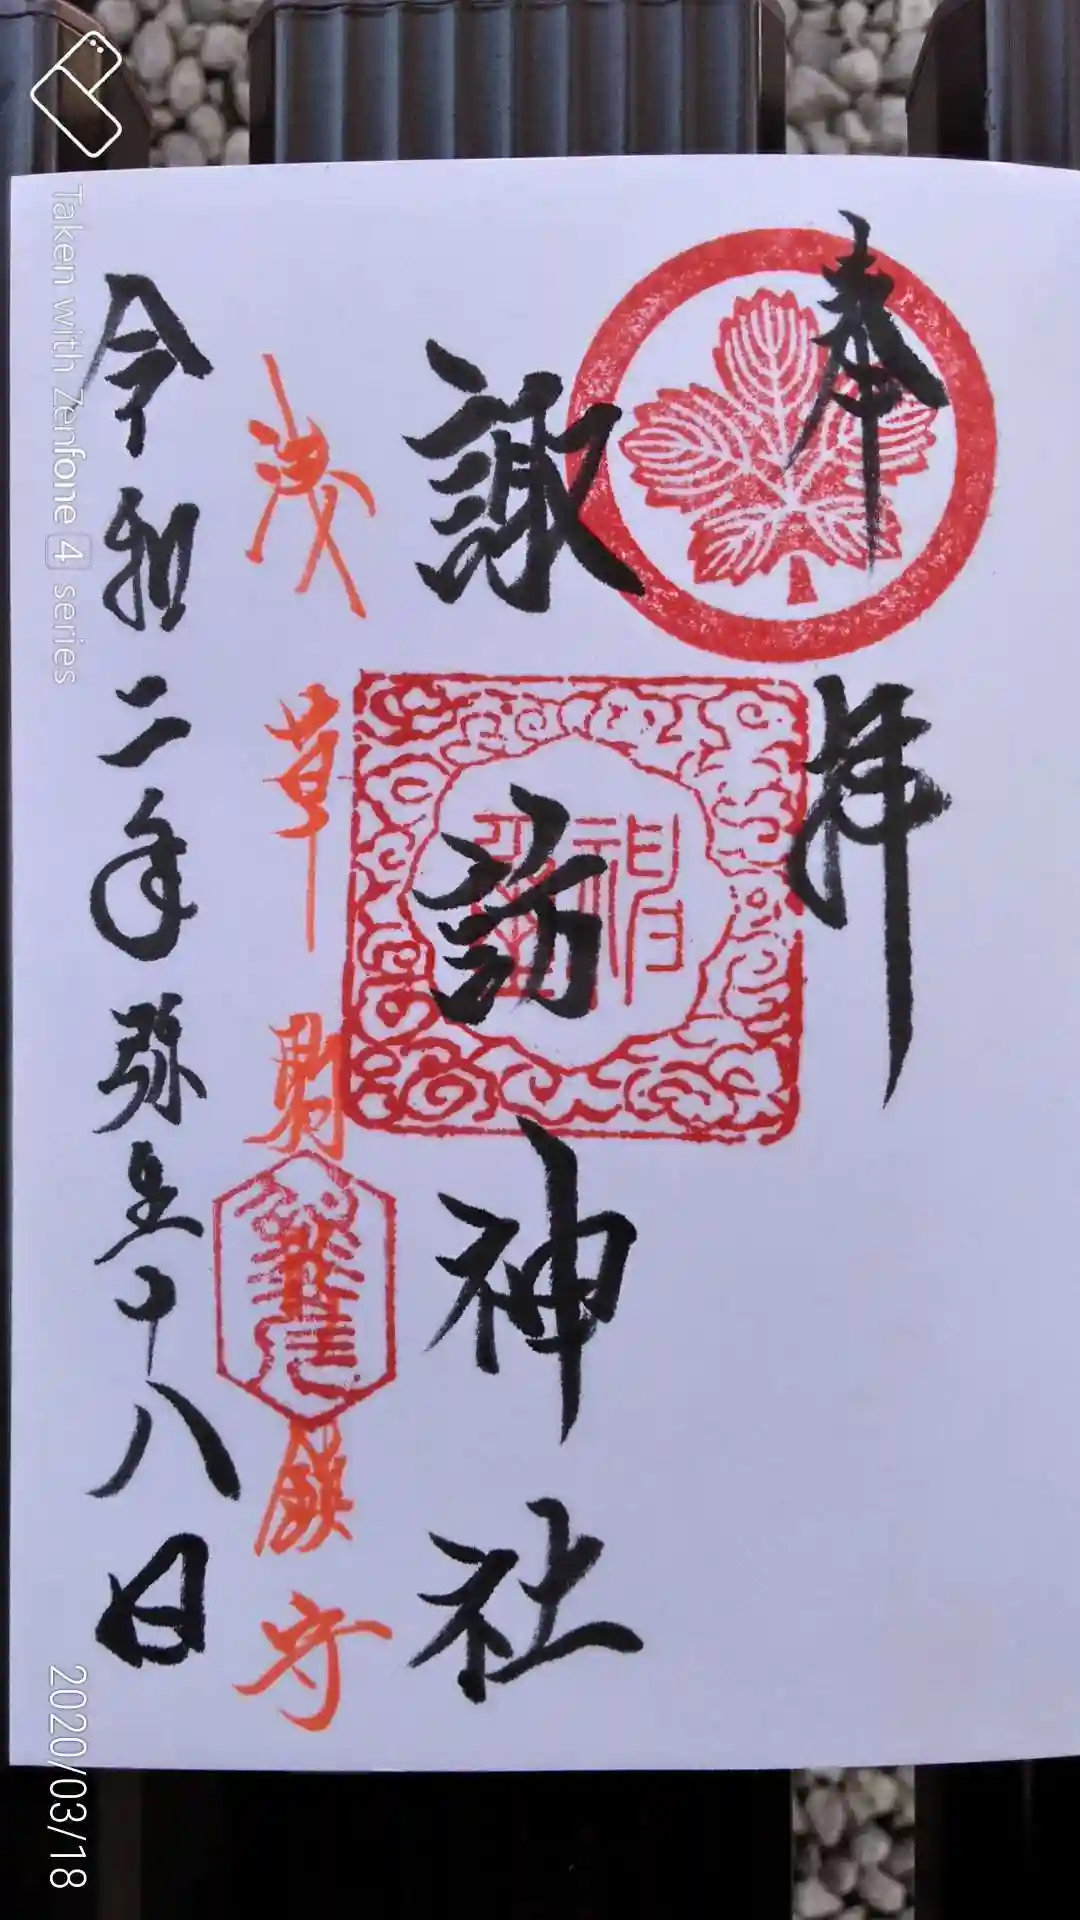 奉拝
諏訪神社
浅草駒形鎮守
令和二年弥生十八日
Taken with Zenfone 4 series
2020/03/18